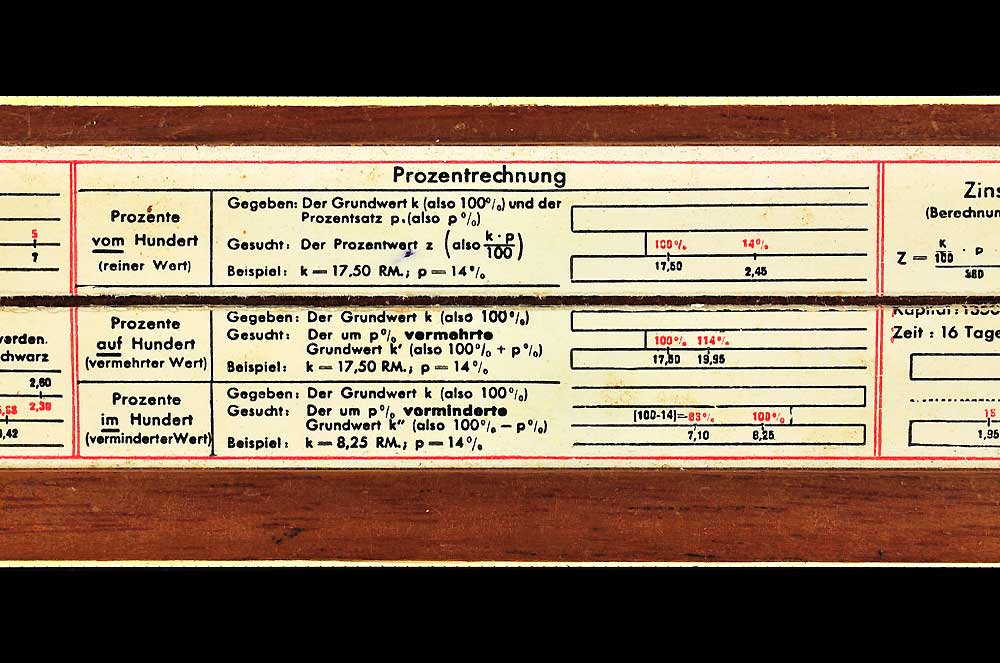 Prozentrechnung
Prozente
vom Hundert
(reiner Wert)
Gegeben: Der Grundwert k (also 100%) und der
Prozentsatz p. (also p%)
Gesucht: Der Prozentwert z (also k · p / 100)
Beispiel: k = 17,50 RM.; p = 14%
100% 14%
17,50 2,45
Prozente
auf Hundert
(vermehrter Wert)
Gegeben: Der Grundwert k (also 100%)
Gesucht: Der um p% vermehrte
Grundwert k' (also 100% + p%)
Beispiel: k = 17,50 RM.; p = 14%
100% 114%
17,50 19,95
Prozente
im Hundert
(verminderter Wert)
Gegeben: Der Grundwert k (also 100%)
Gesucht: Der um p% verminderte
Grundwert k" (also 100% – p%)
Beispiel: k = 8,25 RM.; p = 14%
[100-14]= 100%
7,10 8,25
5
7
werden.
chwarz
2,60
2,30
,42
Zins
(Berechnun
Z = K / 100 · p
360
Kapital: 1350
Zeit : 16 Tage
18
1,95